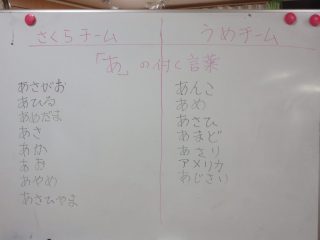 さくらチーム
うめチーム
「あ」の付く言葉
あさがお
あひる
あめだま
あさ
あか
あお
あやめ
あさひやま
あんこ
あめ
あさひ
あまど
あさり
アメリカ
あじさい